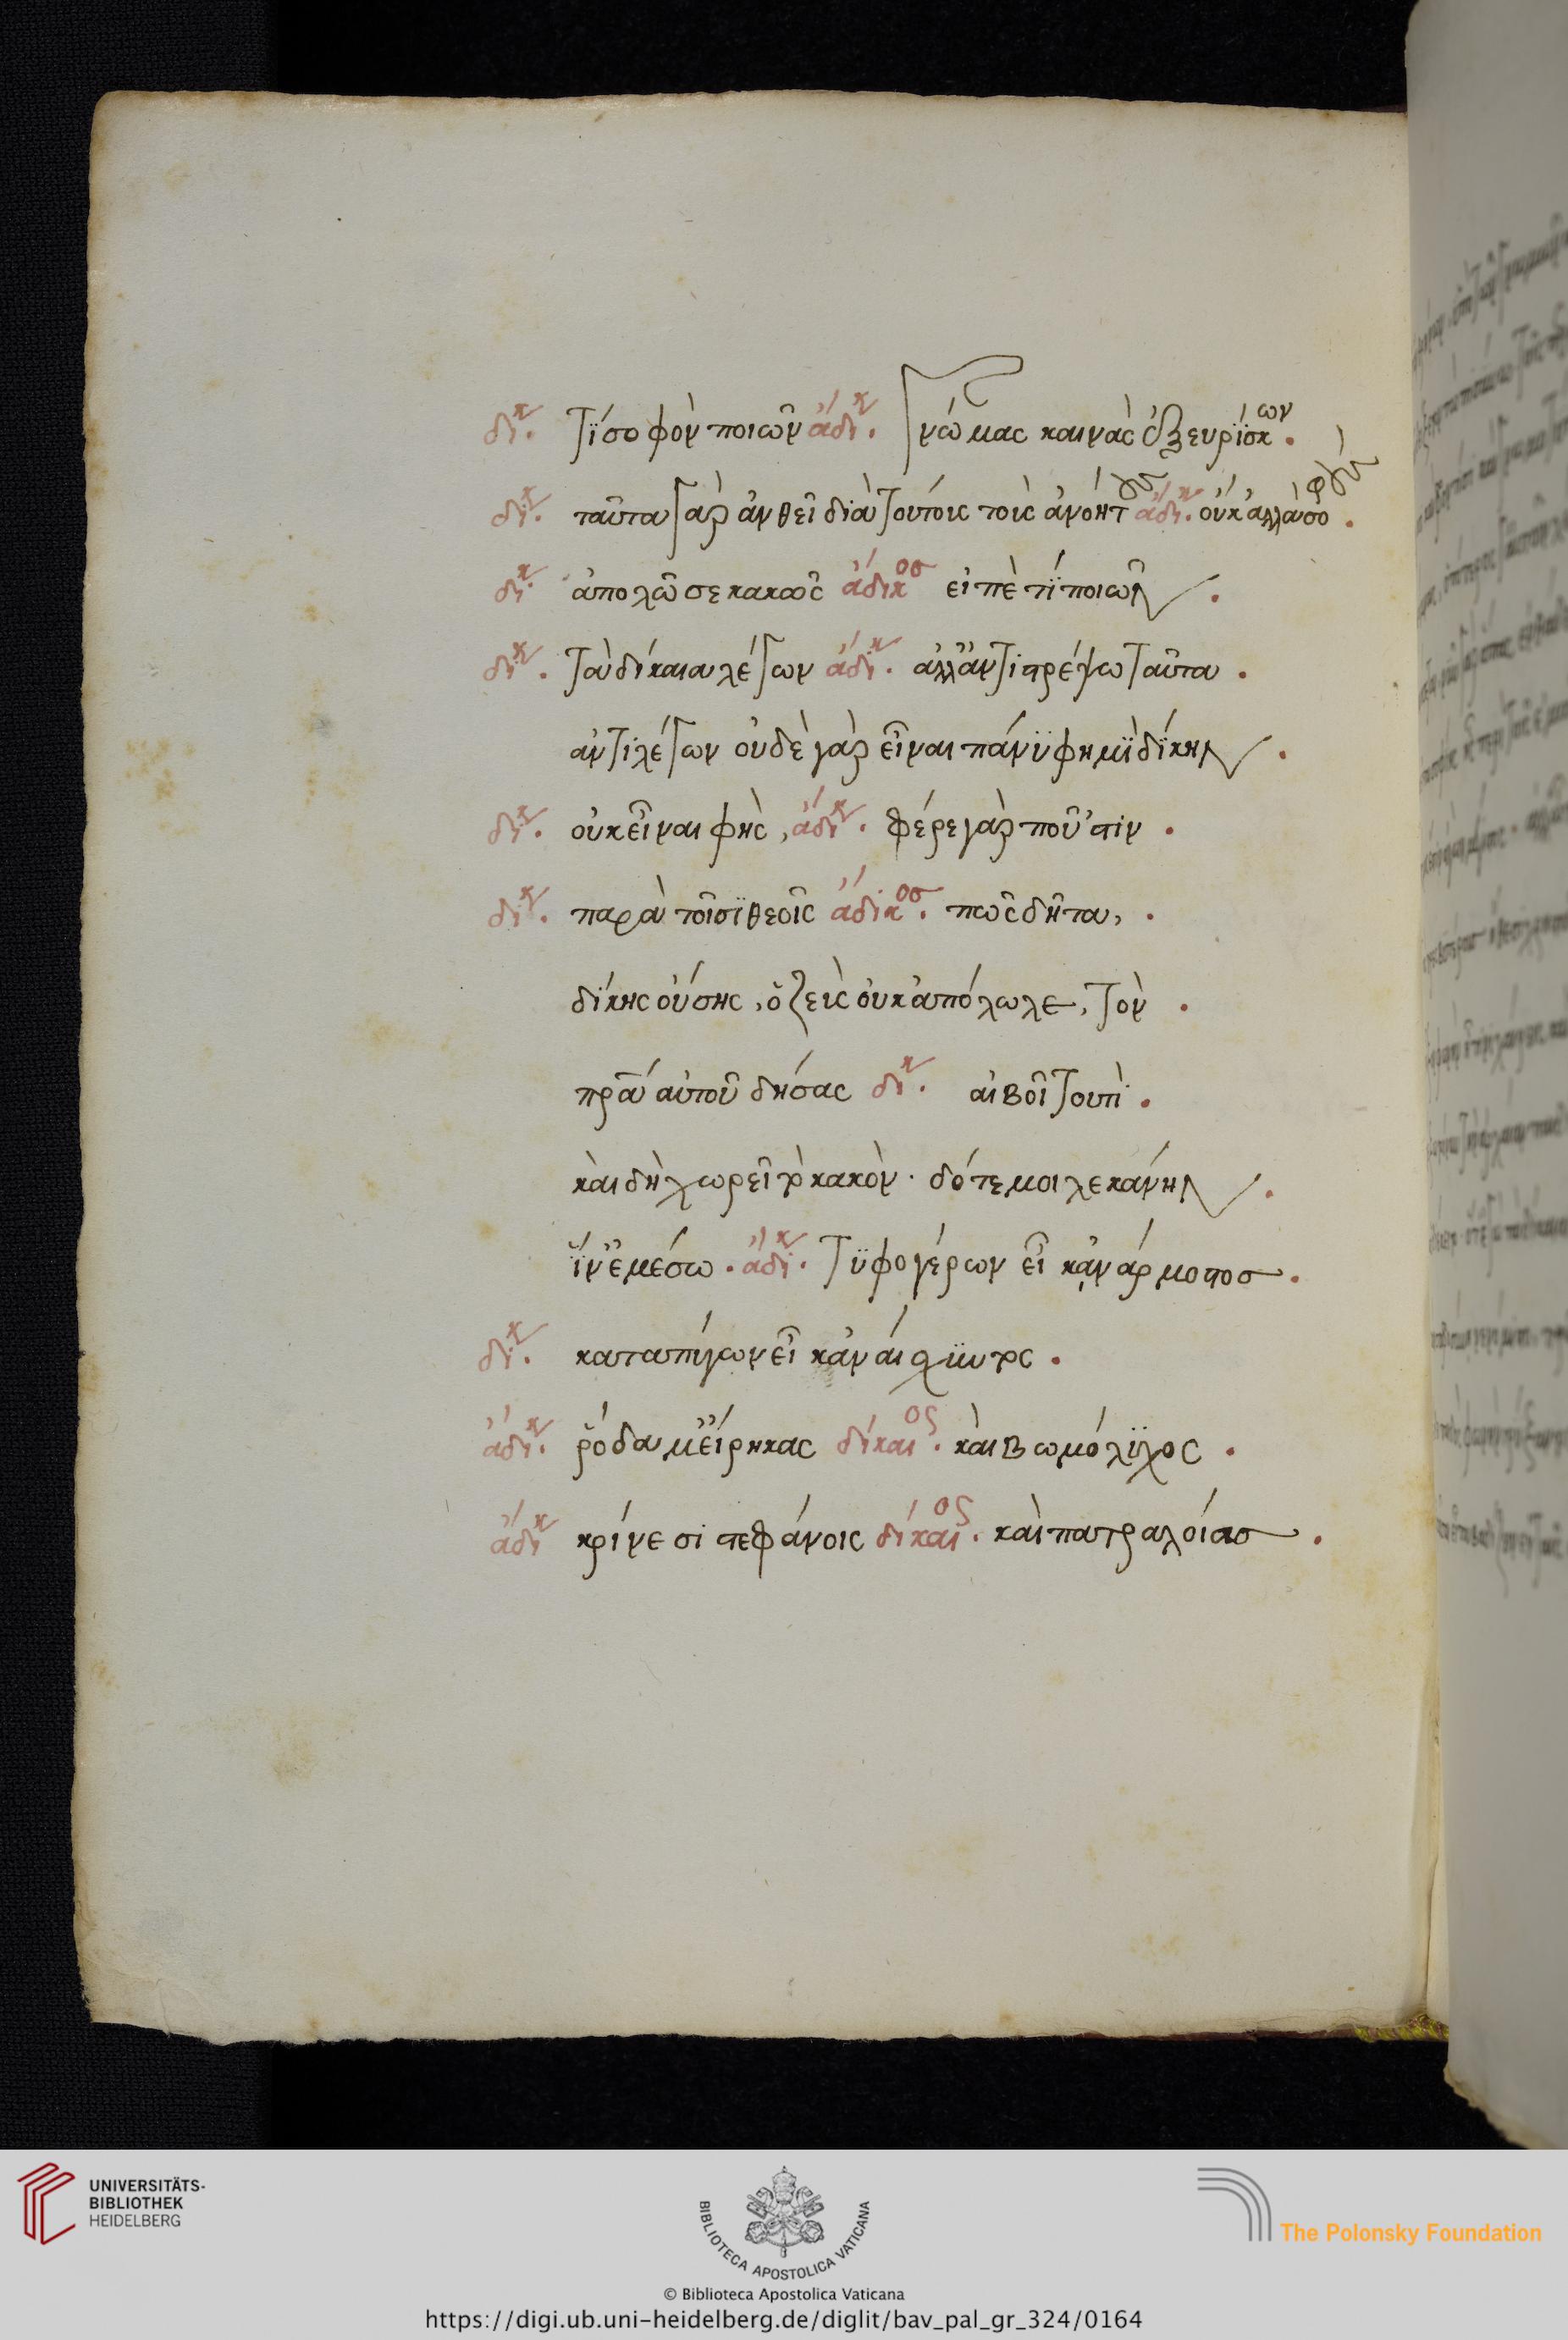 δικ. τί σοφὸν ποιῶν ἄδικ. γνώμας καινὰς ἐξευρίσκων.
δικ. ταῦτα γὰρ ἀνθεῖ διὰ τουτοισὶ τοὺς ἀνοήτους ἄδικ. οὐκ ἀλλὰ σοφούς.
δικ. ἀπολῶ σε κακῶς ἄδικος εἰπὲ τί ποιῶν.
δικ. τὰ δίκαια λέγων ἄδικ. ἀλλ' ἀντιστρέψω ταῦτα.
ἀντιλέγων οὐδὲ γὰρ εἶναι πάνϋ φημῒ δίκην.
δικ. οὐκ εἶναι φῂς, ἄδικ. φέρε γὰρ ποῦ 'στιν.
δικ. παρὰ τοῖσϊ θεοῖς ἄδικος. πῶς δῆτα,.
δίκης οὔσης, ὁ ζεὺς οὐκ ἀπόλωλε, τὸν.
πρα αὐτοῦ δήσας δικ. αἰβοῖ τουτὶ.
καὶ δὴ χωρεῖ τὸ κακὸν. δότε μοι λεκάνην.
ἵν' ἐμέσω. ἄδικ. τϋφογέρων εἶ κἀνάρμοστος.
δικ. καταπύγων εἶ κἀναίσχϋντος.
ἄδικ. ῥόδα μ' εἴρηκας δίκαιος. καὶ βωμόλϋχος.
ἄδικ κρίνεσι στεφάνοις δίκαιος. καὶ πατραλοίας.
UNIVERSITÄTS-
BIBLIOTHEK
HEIDELBERG
BIBLIOTECA APOSTOLICA VATICANA
The Polonsky Foundation
© Biblioteca Apostolica Vaticana
https://digi.ub.uni-heidelberg.de/diglit/bav_pal_gr_324/0164